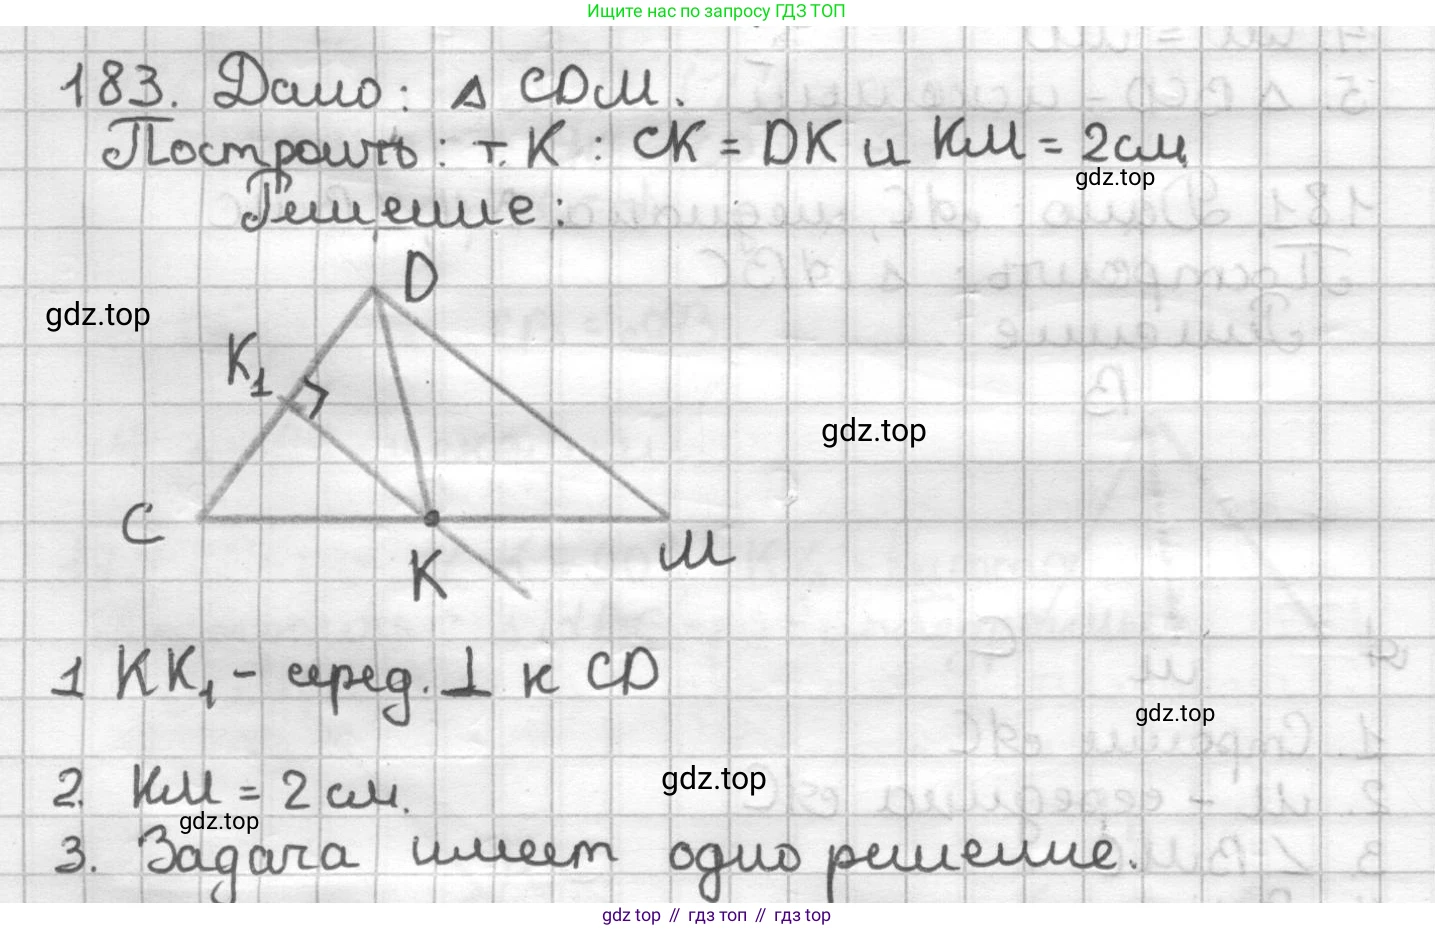 Ищите нас по запросу ГДЗ ТОП
183. Дано: △ CDM.
Построить: т. K : CK = DK и KM = 2 см
gdz.top
Решение:
D
gdz.top
K₁
gdz.top
C
M
K
1 KK₁ - серед. ⊥ к CD
gdz.top
2. KM = 2 см.
gdz.top
gdz.top
3. Задача имеет одно решение.
gdz top // гдз топ // gdz top